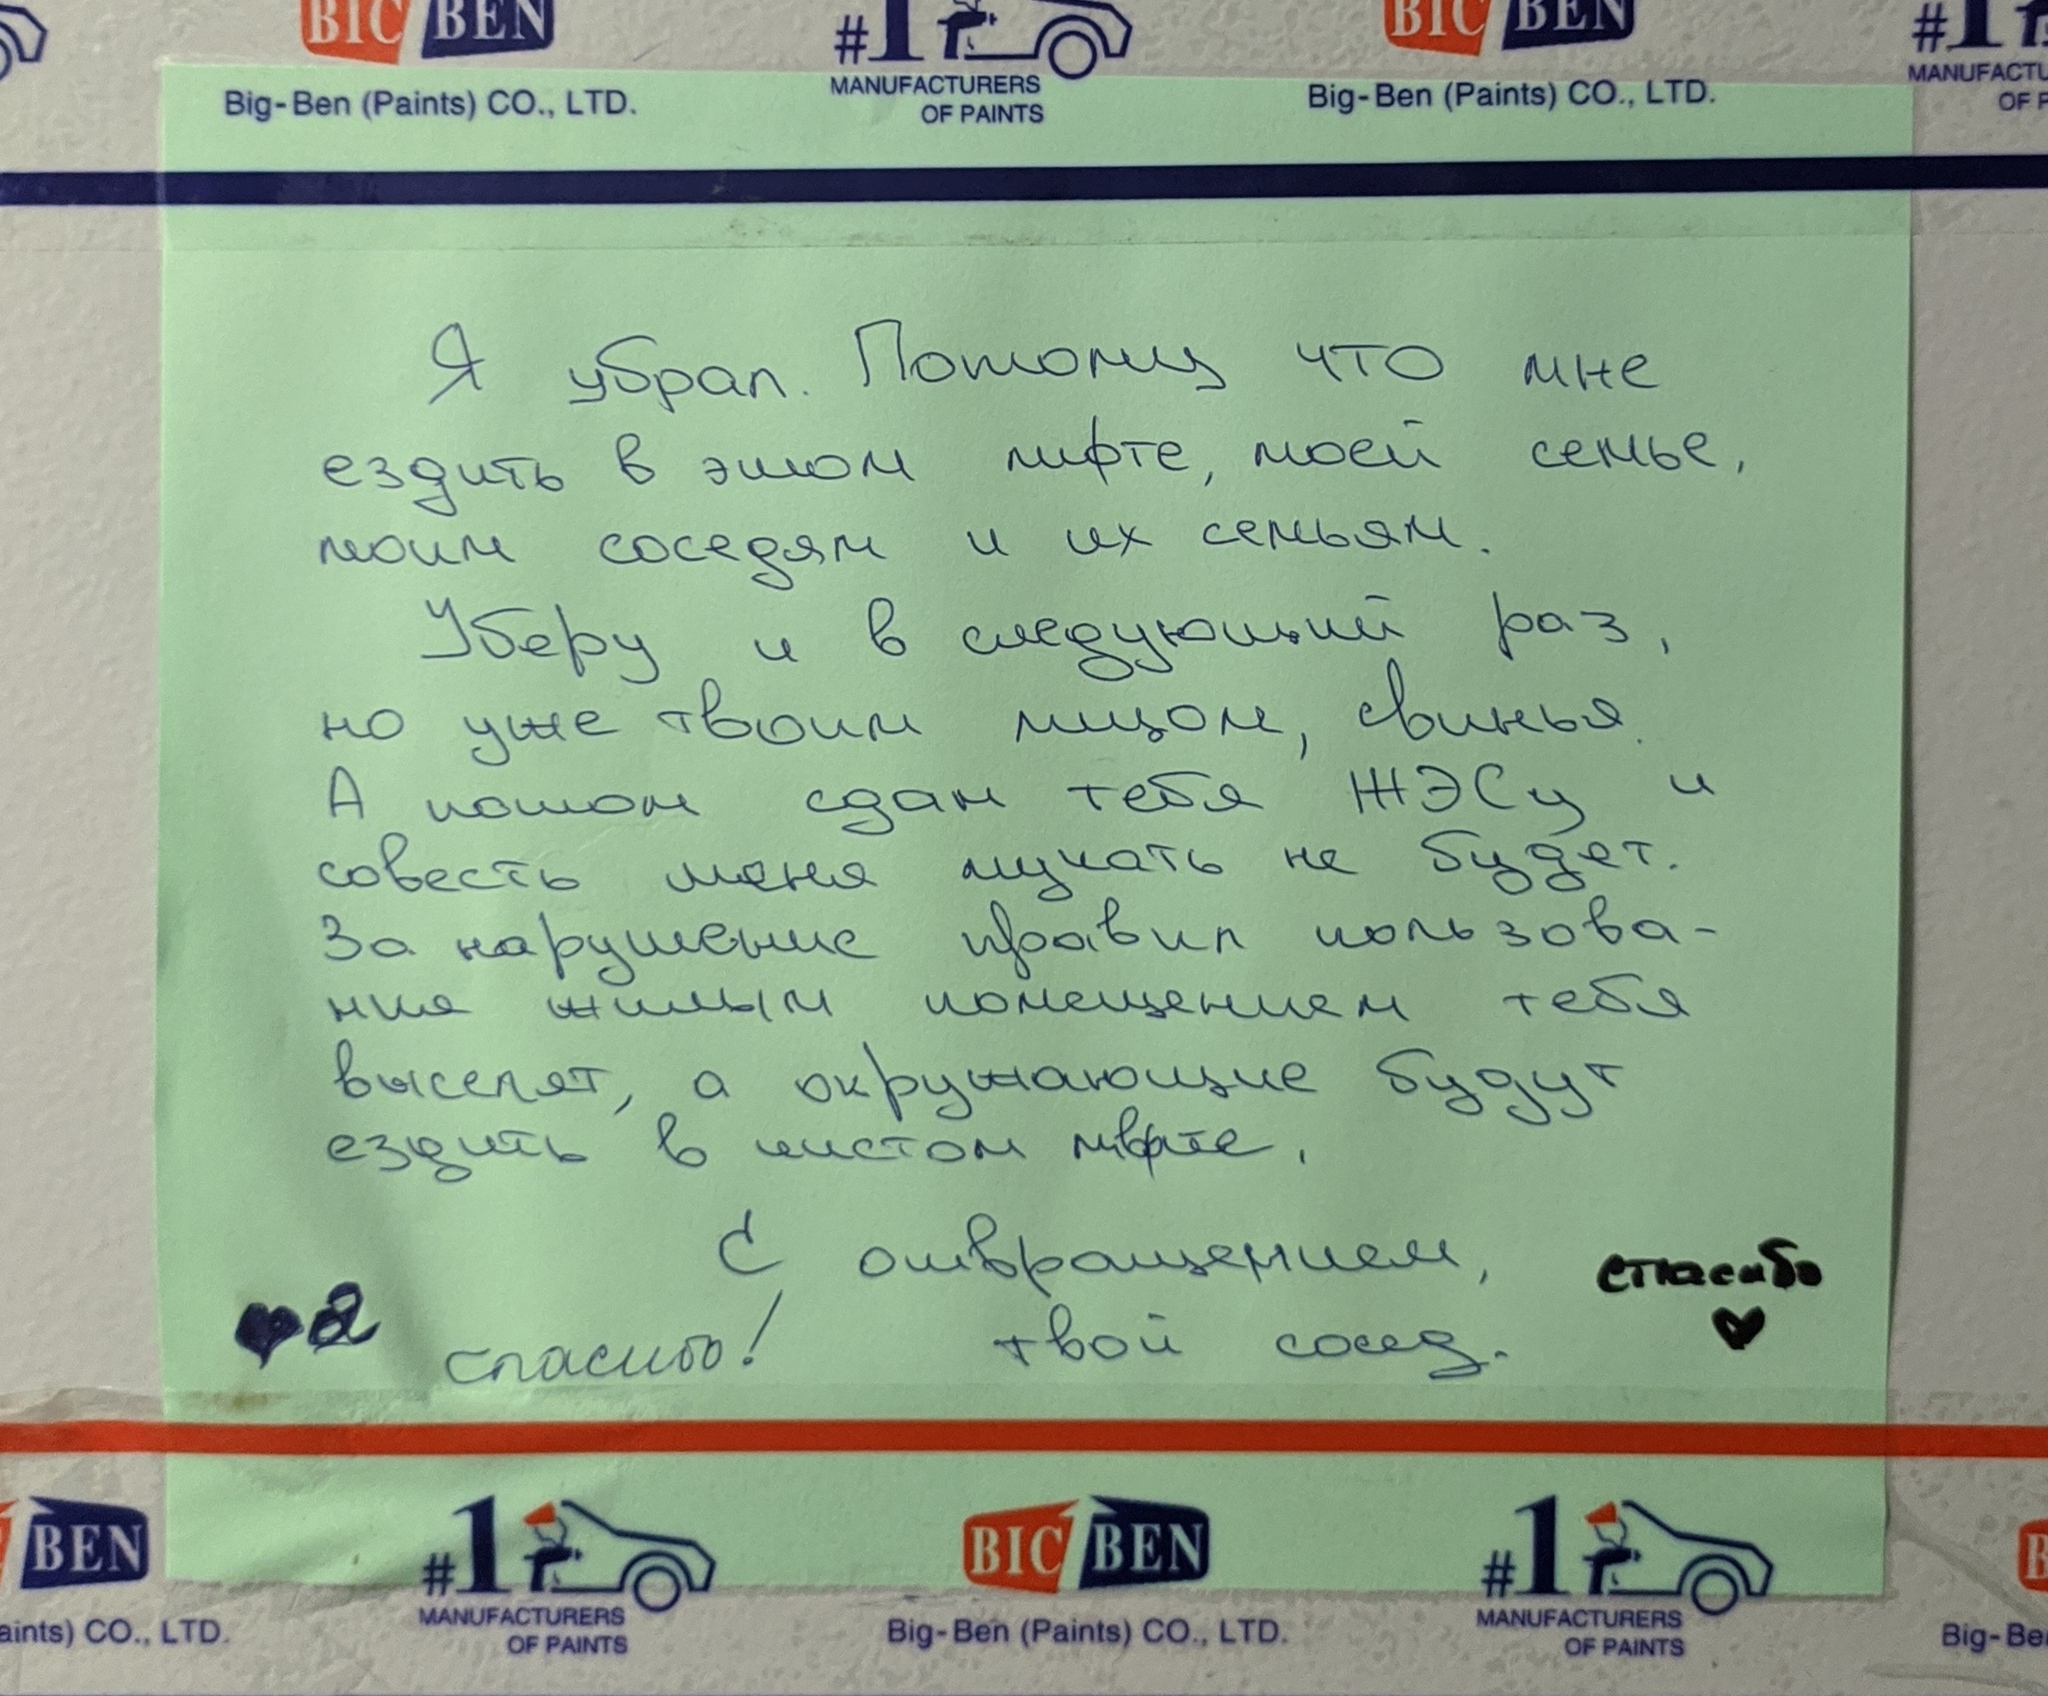 BIG BEN
#1
BIG BEN
#1
Big-Ben (Paints) CO., LTD.
MANUFACTURERS
OF PAINTS
Big-Ben (Paints) CO., LTD.
MANUFACTU
OF P
Я убрал. Потому что мне
ездить в этом лифте, моей семье,
моим соседям и их семьям.
Уберу и в следующий раз,
но уже твоим лицом, свинья.
А потом сдам тебя ЖЭСу и
совесть меня мучать не будет.
За нарушение правил пользова-
ния жилым помещением тебя
выселят, а окружающие будут
ездить в чистом лифте.
С отвращением,
твой сосед.
спасибо
♥
♥ 2
спасибо!
BEN
#1
BIG BEN
#1
B
aints) CO., LTD.
MANUFACTURERS
OF PAINTS
Big-Ben (Paints) CO., LTD.
MANUFACTURERS
OF PAINTS
Big-Be